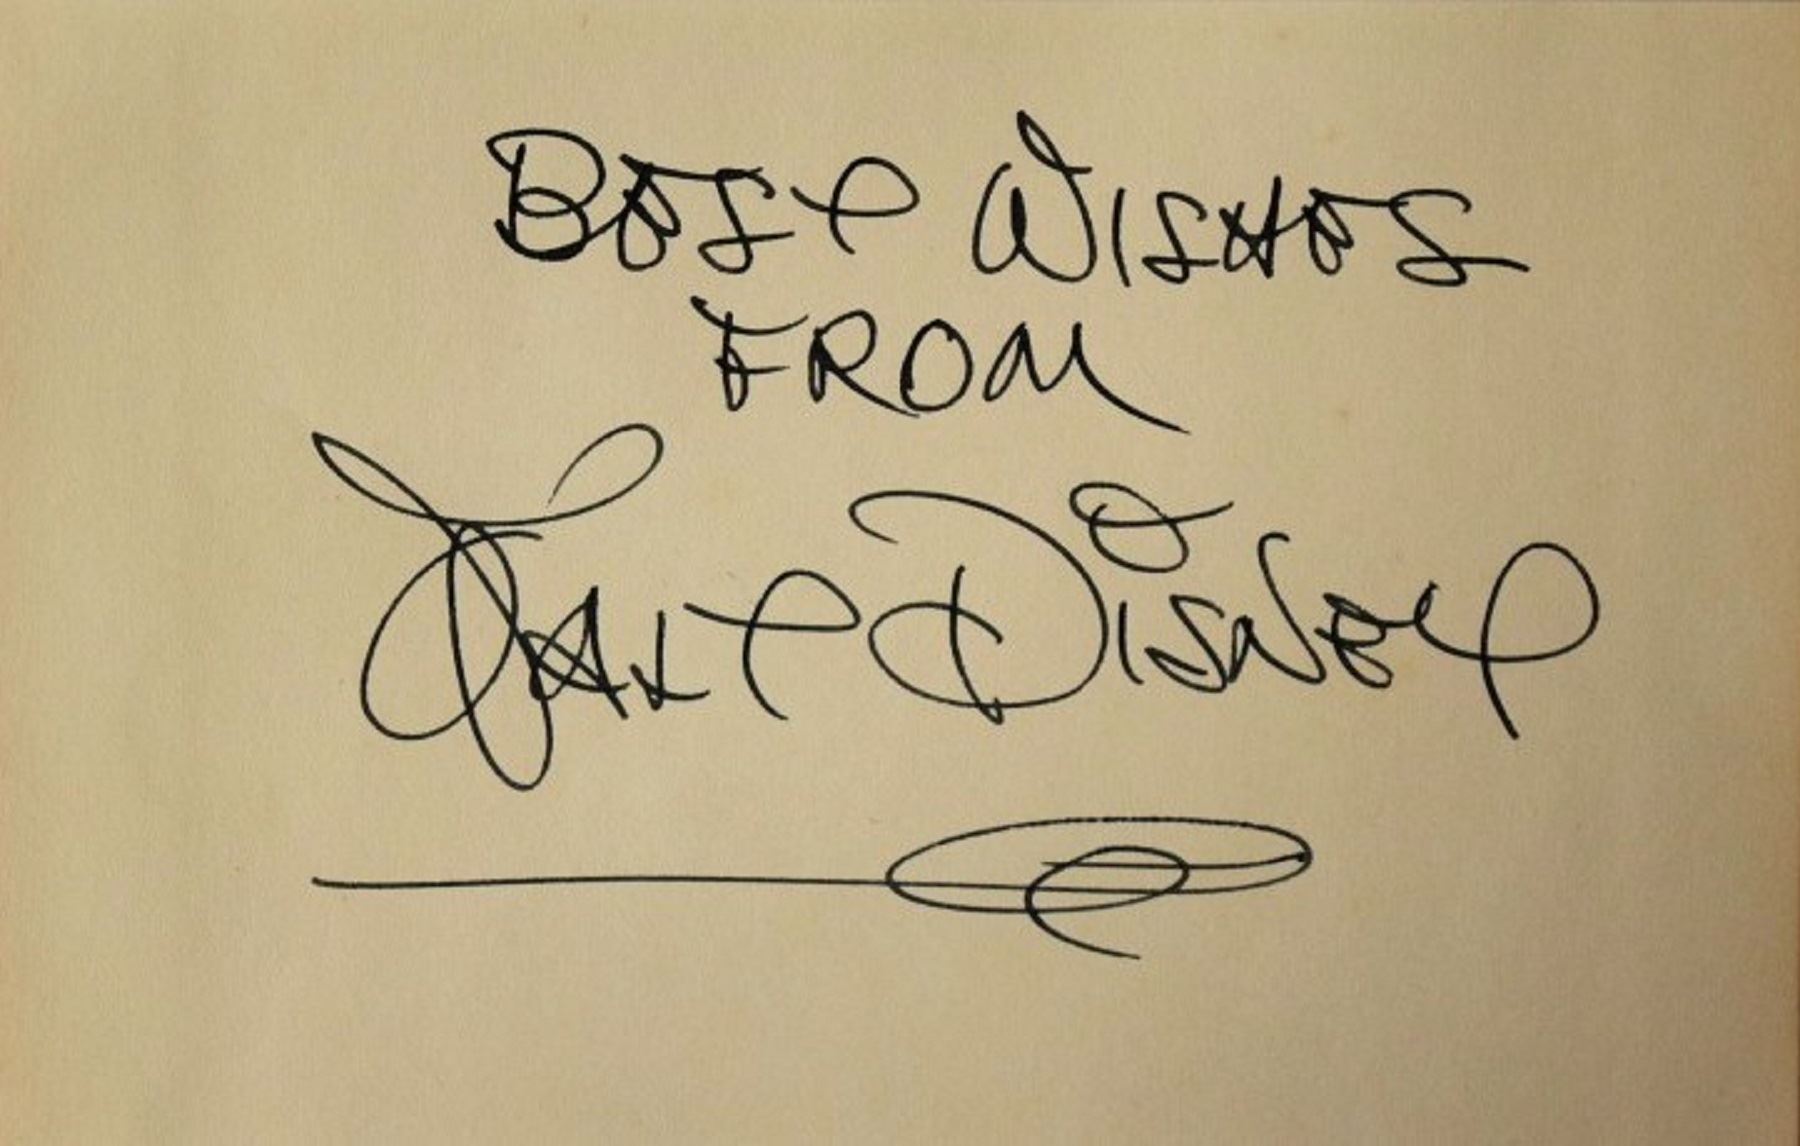 BEST WISHES
FROM
WALT DISNEY